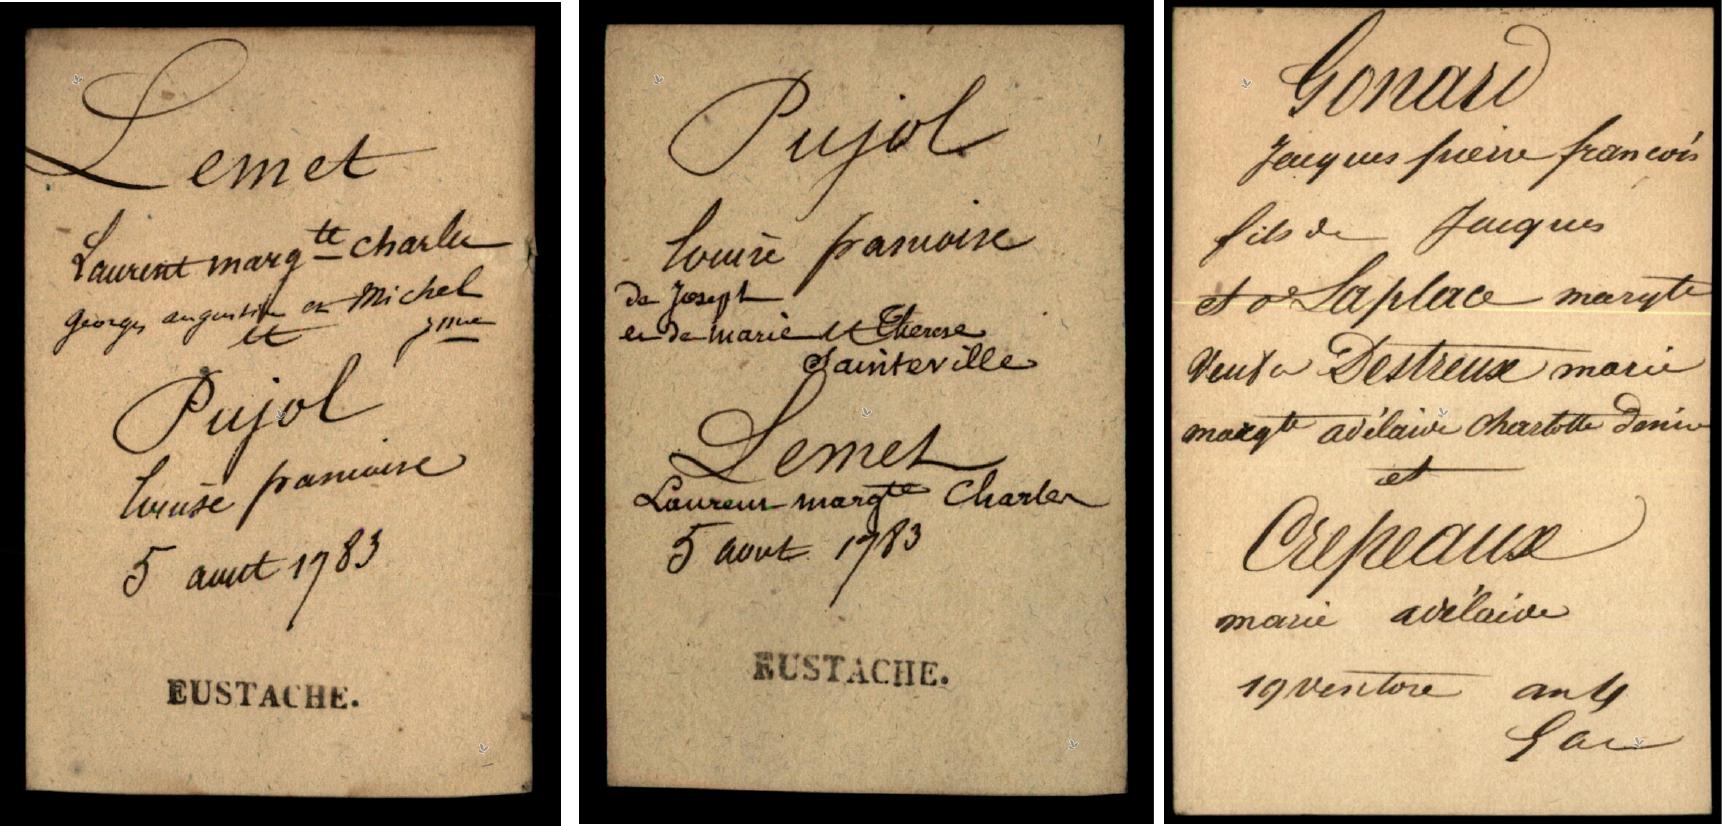 Lemet
Laurent marg^tte charles
georges augustin et Michel
et
Pujol
louise francoise
5 aout 1783
EUSTACHE.
Pujol
louise francoise
de Joseph
et de marie Therese
Sainteville
Lemet
Laurent marg^te Charles
5 aout 1783
EUSTACHE.
Gonard
Jacques pierre francois
fils de Jacques
et de Laplace margte
veuf de Destreux marie
margte adélaide charlotte denise
et
Crepeaux
marie adélaide
19 ventose an 4